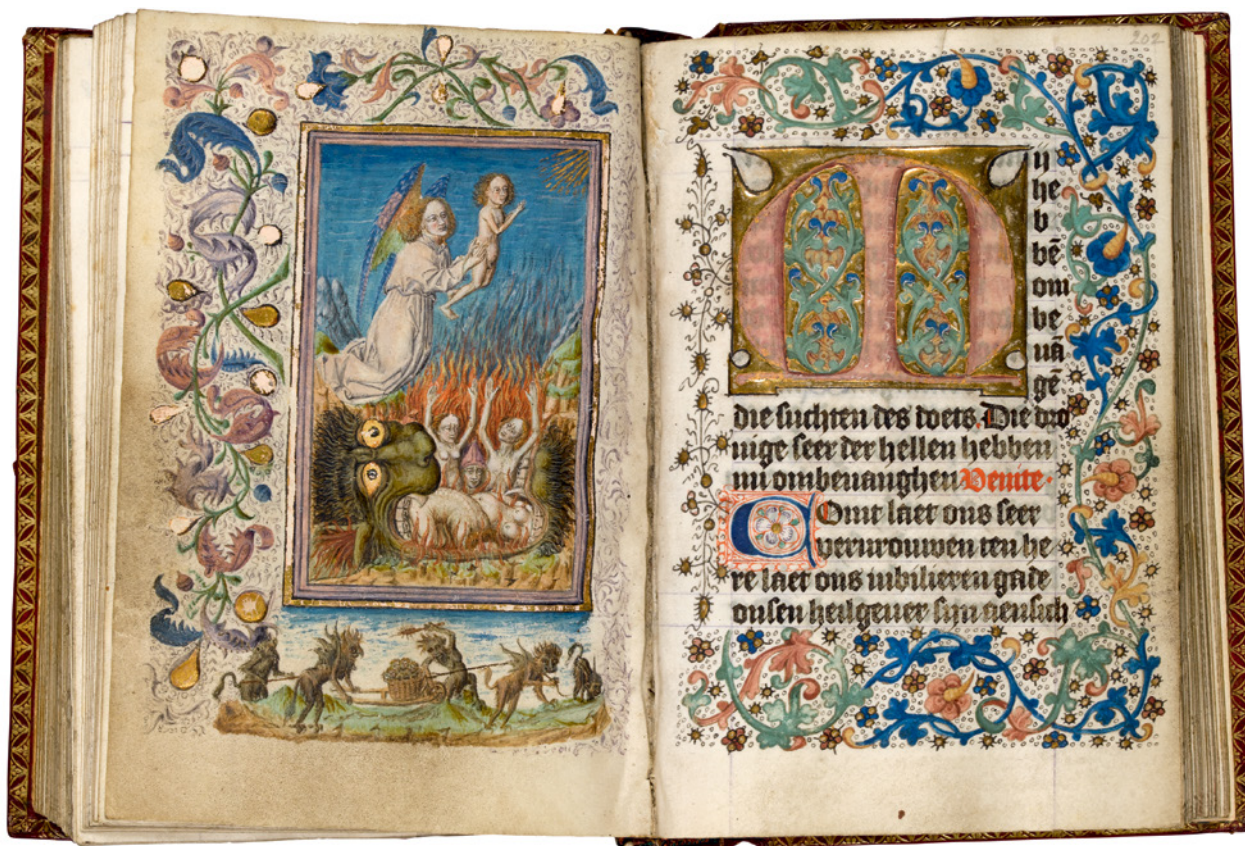 202
Mij
he
b
bē
om
be
uā
gē
die suchten des doets. Die dro
nige seer der hellen hebben
mi ombeuanghen Venite.
Comt laet ons seer
vervrouwen ten he
re laet ons iubilieren gade
onsen heilgeuer sijn aensich